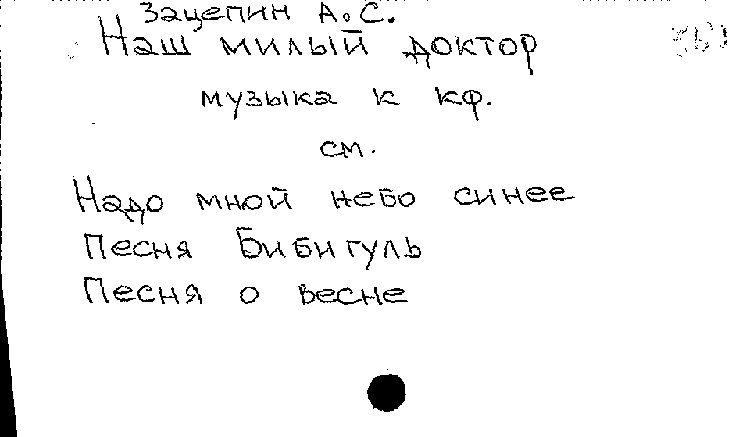 Зацепин А.С.
Наш милый доктор
музыка к кф.
см.
Надо мной небо синее
Песня Бибигуль
Песня о весне